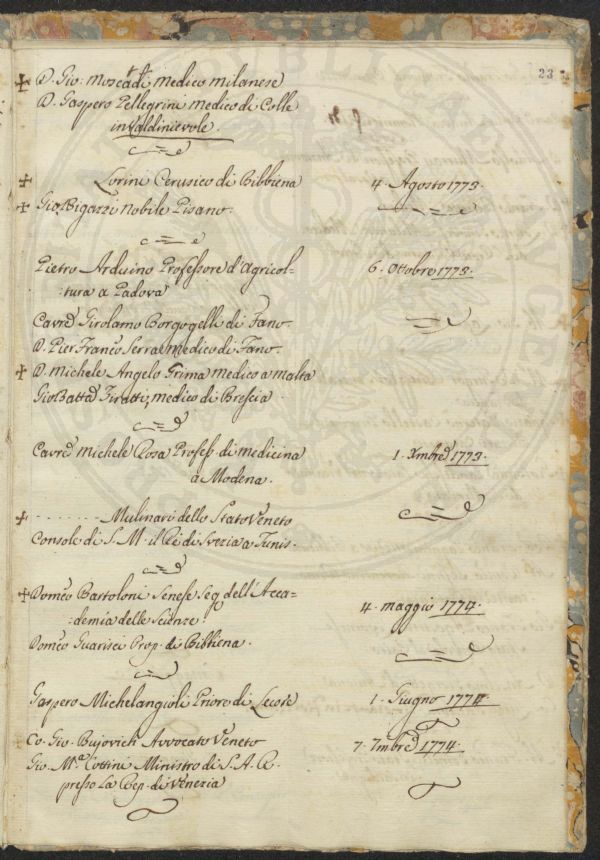 23
✠ D. Gio: Moscati Medico Milanese
D. Gaspero Pellegrini Medico di Colle
in Valdinievole.
✠ Lorini Cerusico di Bibbiena 4. Agosto 1773.
✠ Gio. Bigazzi Nobile Pisano.
Pietro Arduino Professore d'Agricol- 6. Ottobre 1773.
:tura a Padova
Cavre Girolamo Borgogelli di Fano.
D. Pier Franco Serra Medico di Fano.
✠ D. Michele Angelo Grima Medico a Malta
Gio Batta Medico di Brescia.
Cavre Michele Rosa Profess. di Medicina 1. Xmbre 1773.
a Modena.
✠ ....... Mulinari dello Stato Veneto
Console di S. M. il Re di Svezia a Tunis.
✠ Domco Bartoloni Senese Seg. dell'Acca- 4. Maggio 1774.
:demia delle Scienze.
Domco Guarisci Prop. di Bibbiena.
Gaspero Michelangioli Priore di Lecore 1. Giugno 1774.
✠ Co. Gio. Bujovich Avvocato Veneto 7. 7mbre 1774.
Gio. Ma. Cottini Ministro di S. A. R.
presso La Rep. di Venezia